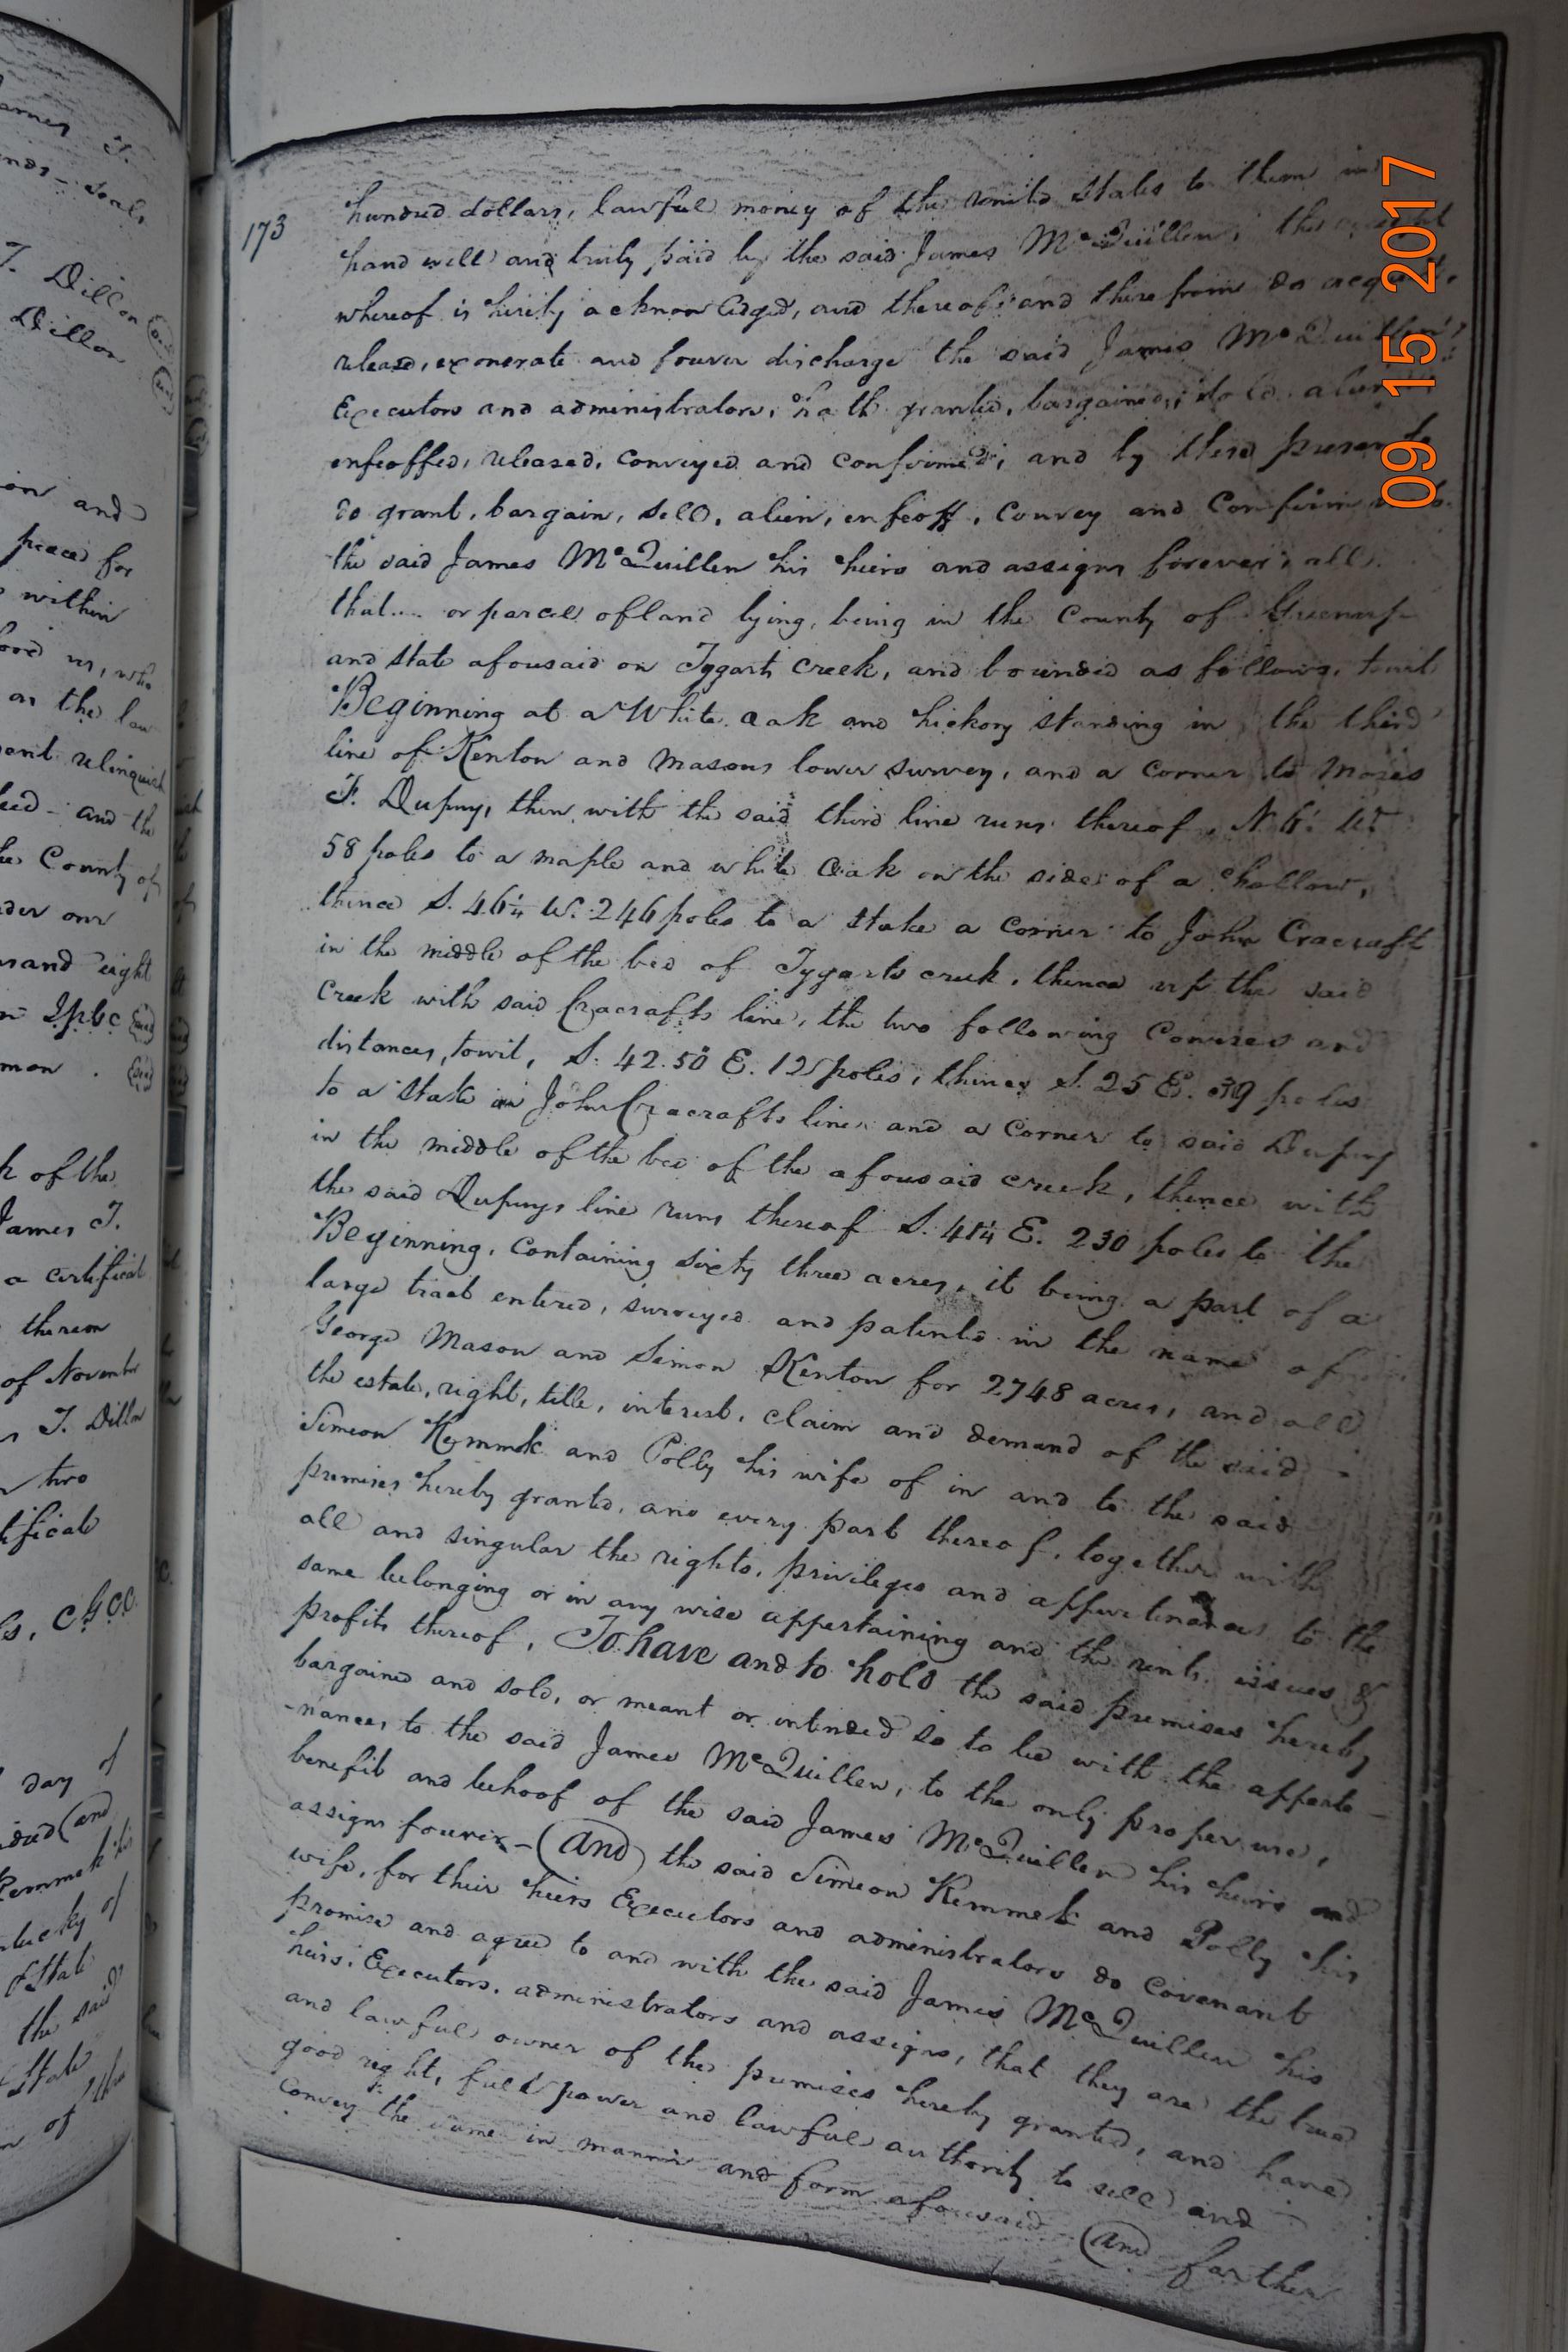 173
hundred dollars, lawful money of the United States to them in
hand well and truly paid by the said James McQuillen, the
whereof is hereby acknowledged, and thereof and there from do acquit,
release, exonerate and forever discharge the said James McQuillen,
Executors and administrators, hath granted, bargained, sold, alien
enfeoffed, released, conveyed and confirmed, and by these presents
do grant, bargain, sell, alien, enfeoff, convey and confirm
the said James McQuillen his heirs and assigns forever, all
that.... or parcel of land lying, being in the County of Greenup
and state aforesaid on Tygarts Creek, and bounded as follows, towit
Beginning at a White oak and hickory standing in the third
line of Kenton and Masons lower survey, and a corner to Moses
F. Dupuy, then with the said third line runs thereof N. W.
58 poles to a maple and white oak on the side of a hollow,
thence S. 46¼ W. 246 poles to a stake a corner to John Cracraft
in the middle of the bed of Tygarts creek, thence up the said
Creek with said Cracrafts line, the two following Courses and
distances, towit, S. 42.50 E. poles, thence S. 25 E. 39 poles
to a stake in John Cracrafts line and a corner to said Dupuy
in the middle of the bed of the aforesaid creek, thence with
the said Dupuys line runs thereof S. E. 230 poles to the
Beginning, containing sixty three acres, it being a part of a
large tract entered, surveyed and patented in the name of
George Mason and Simon Kenton for 2748 acres, and all
the estate, right, title, interest, claim and demand of the said
Simeon Kemmek and Polly his wife of in and to the said
premises hereby granted, and every part thereof, together with
all and singular the rights, privileges and appurtenances to the
same belonging or in any wise appertaining and the rents issues &
profits thereof, To have and to hold the said premises hereby
bargained and sold, or meant or intended so to be with the appurte-
-nances, to the said James McQuillen, to the only proper use,
benefit and behoof of the said James McQuillen his heirs and
assigns forever - (and) the said Simeon Kemmek and Polly his
wife, for their heirs Executors and administrators do covenant
promise and agree to and with the said James McQuillen his
heirs, Executors, administrators and assigns, that they are the true
and lawful owner of the premises hereby granted, and have
good right, full power and lawful authority to sell and
Convey the same in manner and form aforesaid (and) farther
09 15 2017
James T.
Dillon
Dillon
and
peace for
within
as the law
relinquish
and the
County of
our
eight
of the
James T.
a certificate
thereon
of November
T. Dillon
two
day of
(and
of
State
the said
State
of